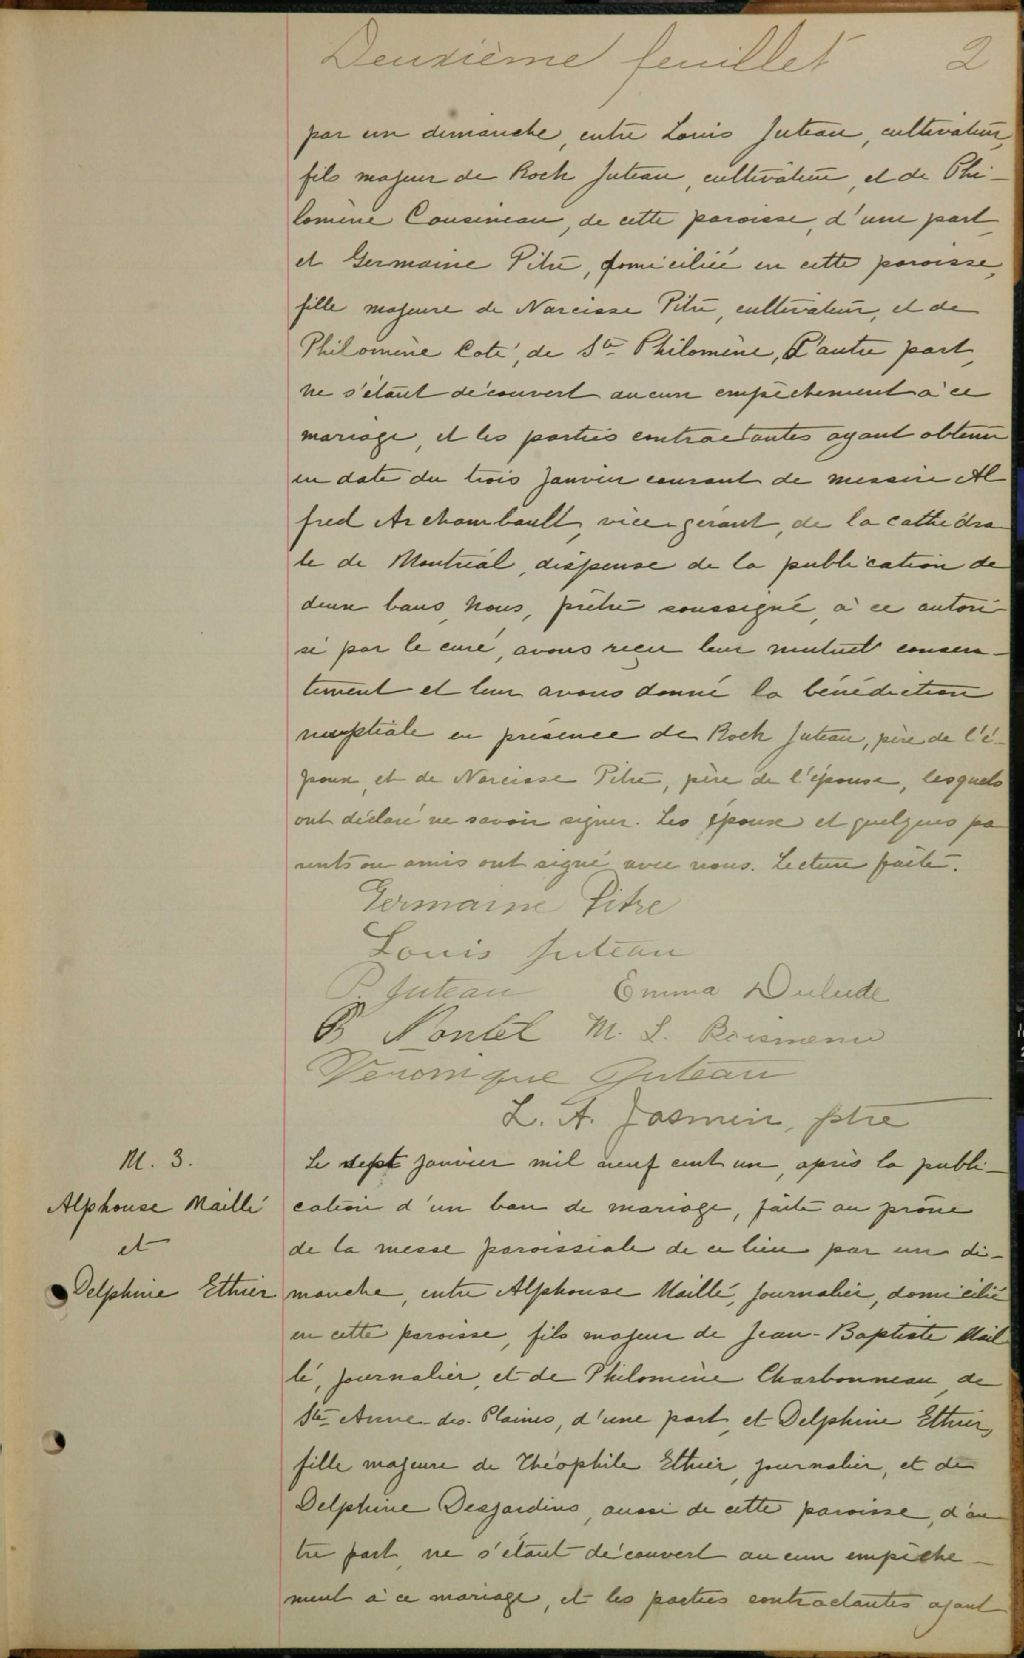 Deuxième feuillet 2
par un dimanche, entre Louis Juteau, cultivateur,
fils majeur de Roch Juteau, cultivateur, et de Phi-
lomène Cousineau, de cette paroisse, d'une part,
et Germaine Pitre, domiciliée en cette paroisse,
fille majeure de Narcisse Pitre, cultivateur, et de
Philomène Coté, de Ste Philomène, d'autre part,
ne s'étant découvert aucun empêchement à ce
mariage, et les parties contractantes ayant obtenu
en date du trois janvier courant de messire Al
fred Archambault, vice-gérant, de la cathédra
le de Montréal, dispense de la publication de
deux bans, Nous, prêtre soussigné, à ce autori-
sé par le curé, avons reçu leur mutuel consen-
tement et leur avons donné la bénédiction
nuptiale en présence de Roch Juteau, père de l'é-
poux, et de Narcisse Pitre, père de l'épouse, lesquels
ont déclaré ne savoir signer. Les époux et quelques pa
rents ou amis ont signé avec nous. Lecture faite.
Germaine Pitre
Louis Juteau
P. Juteau Emma Dulude
M. L. Boismenu
Véronique Juteau
L. A. Jasmin, ptre
M. 3.
Alphonse Maillé
et
Delphine Ethier
Le sept janvier mil neuf cent un, après la publi-
cation d'un ban de mariage, faite au prône
de la messe paroissiale de ce lieu par un di-
manche, entre Alphonse Maillé, journalier, domicilié
en cette paroisse, fils majeur de Jean-Baptiste Mail
lé, journalier, et de Philomène Charbonneau, de
Ste Anne-des-Plaines, d'une part, et Delphine Ethier,
fille majeure de Théophile Ethier, journalier, et de
Delphine Desjardins, aussi de cette paroisse, d'au
tre part, ne s'étant découvert aucun empêche-
ment à ce mariage, et les parties contractantes ayant